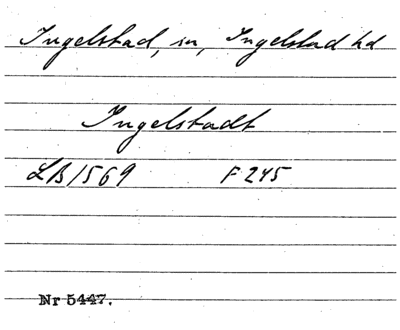 Ingelstad, sn, Ingelstad hd
Ingelstadt
LB 1569 F 245
Nr 5447.